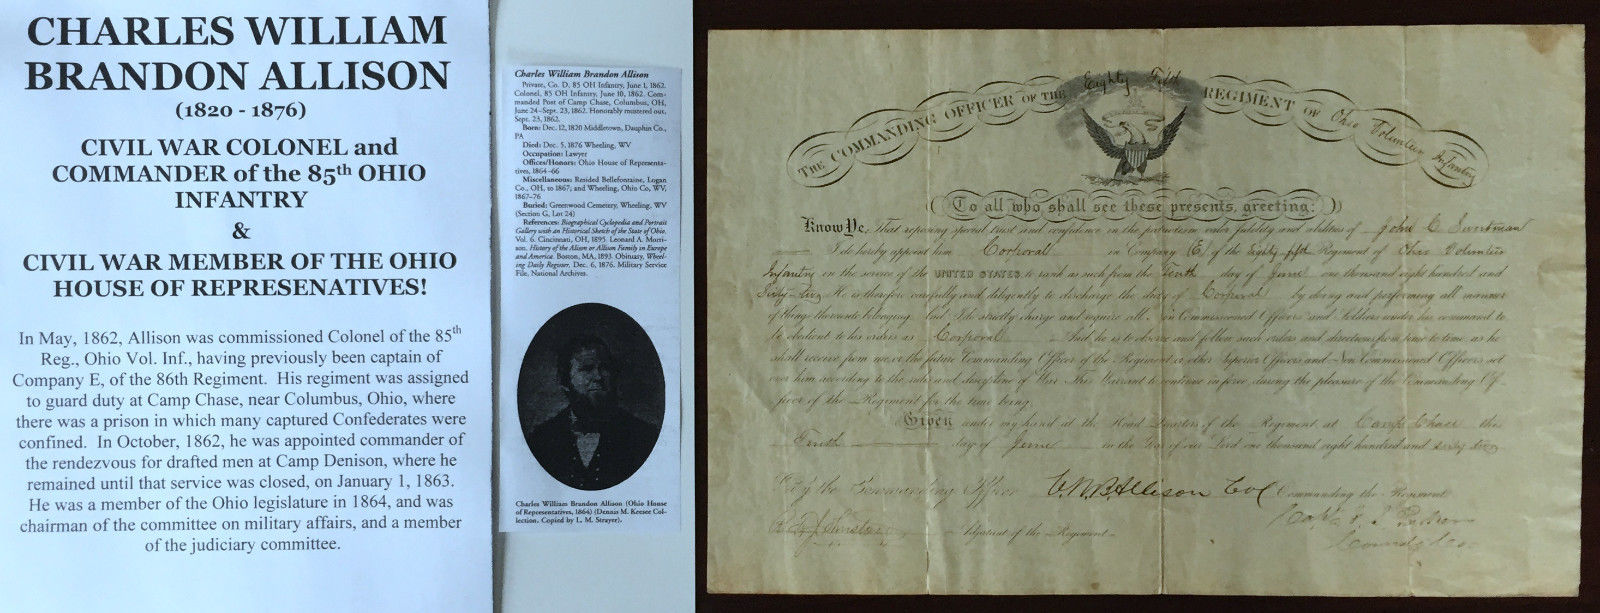 CHARLES WILLIAM
BRANDON ALLISON
(1820 - 1876)
CIVIL WAR COLONEL and
COMMANDER of the 85th OHIO
INFANTRY
&
CIVIL WAR MEMBER OF THE OHIO
HOUSE OF REPRESENATIVES!
In May, 1862, Allison was commissioned Colonel of the 85th
Reg., Ohio Vol. Inf., having previously been captain of
Company E, of the 86th Regiment. His regiment was assigned
to guard duty at Camp Chase, near Columbus, Ohio, where
there was a prison in which many captured Confederates were
confined. In October, 1862, he was appointed commander of
the rendezvous for drafted men at Camp Denison, where he
remained until that service was closed, on January 1, 1863.
He was a member of the Ohio legislature in 1864, and was
chairman of the committee on military affairs, and a member
of the judiciary committee.
Charles William Brandon Allison
Private, Co. D, 85 OH Infantry, June 1, 1862.
Colonel, 85 OH Infantry, June 10, 1862. Com-
manded Post of Camp Chase, Columbus, OH,
June 24-Sept. 23, 1862. Honorably mustered out,
Sept. 23, 1862.
Born: Dec. 12, 1820 Middletown, Dauphin Co.,
PA
Died: Dec. 5, 1876 Wheeling, WV
Occupation: Lawyer
Offices/Honors: Ohio House of Representa-
tives, 1864-66
Miscellaneous: Resided Bellefontaine, Logan
Co., OH, to 1867; and Wheeling, Ohio Co, WV,
1867-76
Buried: Greenwood Cemetery, Wheeling, WV
(Section G, Lot 24)
References: Biographical Cyclopedia and Portrait
Gallery with an Historical Sketch of the State of Ohio.
Vol. 6. Cincinnati, OH, 1895. Leonard A. Morri-
son. History of the Alison or Allison Family in Europe
and America. Boston, MA, 1893. Obituary, Wheel-
ing Daily Register, Dec. 6, 1876. Military Service
File, National Archives.
Charles William Brandon Allison (Ohio House
of Representatives, 1864) (Dennis M. Keesee Col-
lection. Copied by L. M. Strayer).
THE COMMANDING OFFICER OF THE Eighty Fifth REGIMENT OF Ohio Volunteer Infantry
(To all who shall see these presents, greeting:)
Know Ye, That reposing special trust and confidence in the patriotism, valor, fidelity and abilities of John C
I do hereby appoint him Corporal in Company (E) of the Eighty fifth Regiment of Ohio Volunteer
Infantry in the service of the UNITED STATES to rank as such from the Tenth day of June one thousand eight hundred and
Sixty-Two He is therefore carefully and diligently to discharge the duty of Corporal by doing and performing all manner
of things thereunto belonging. And I do strictly charge and require all Non Commissioned Officers and Soldiers under his command to
be obedient to his orders as Corporal And he is to observe and follow such orders and directions from time to time as he
shall receive from me or the future Commanding Officer of the Regiment or other Superior Officers and Non Commissioned Officers set
over him according to the rules and discipline of War. This Warrant to continue in force during the pleasure of the Commanding Of-
ficer of the Regiment for the time being.
Given under my hand at the Head Quarters of the Regiment at Camp Chase this
Tenth day of June in the Year of our Lord one thousand eight hundred and sixty two
By the Commanding Officer C.W.B. Allison Col Commanding the Regiment
Adjutant of the Regiment
Capt